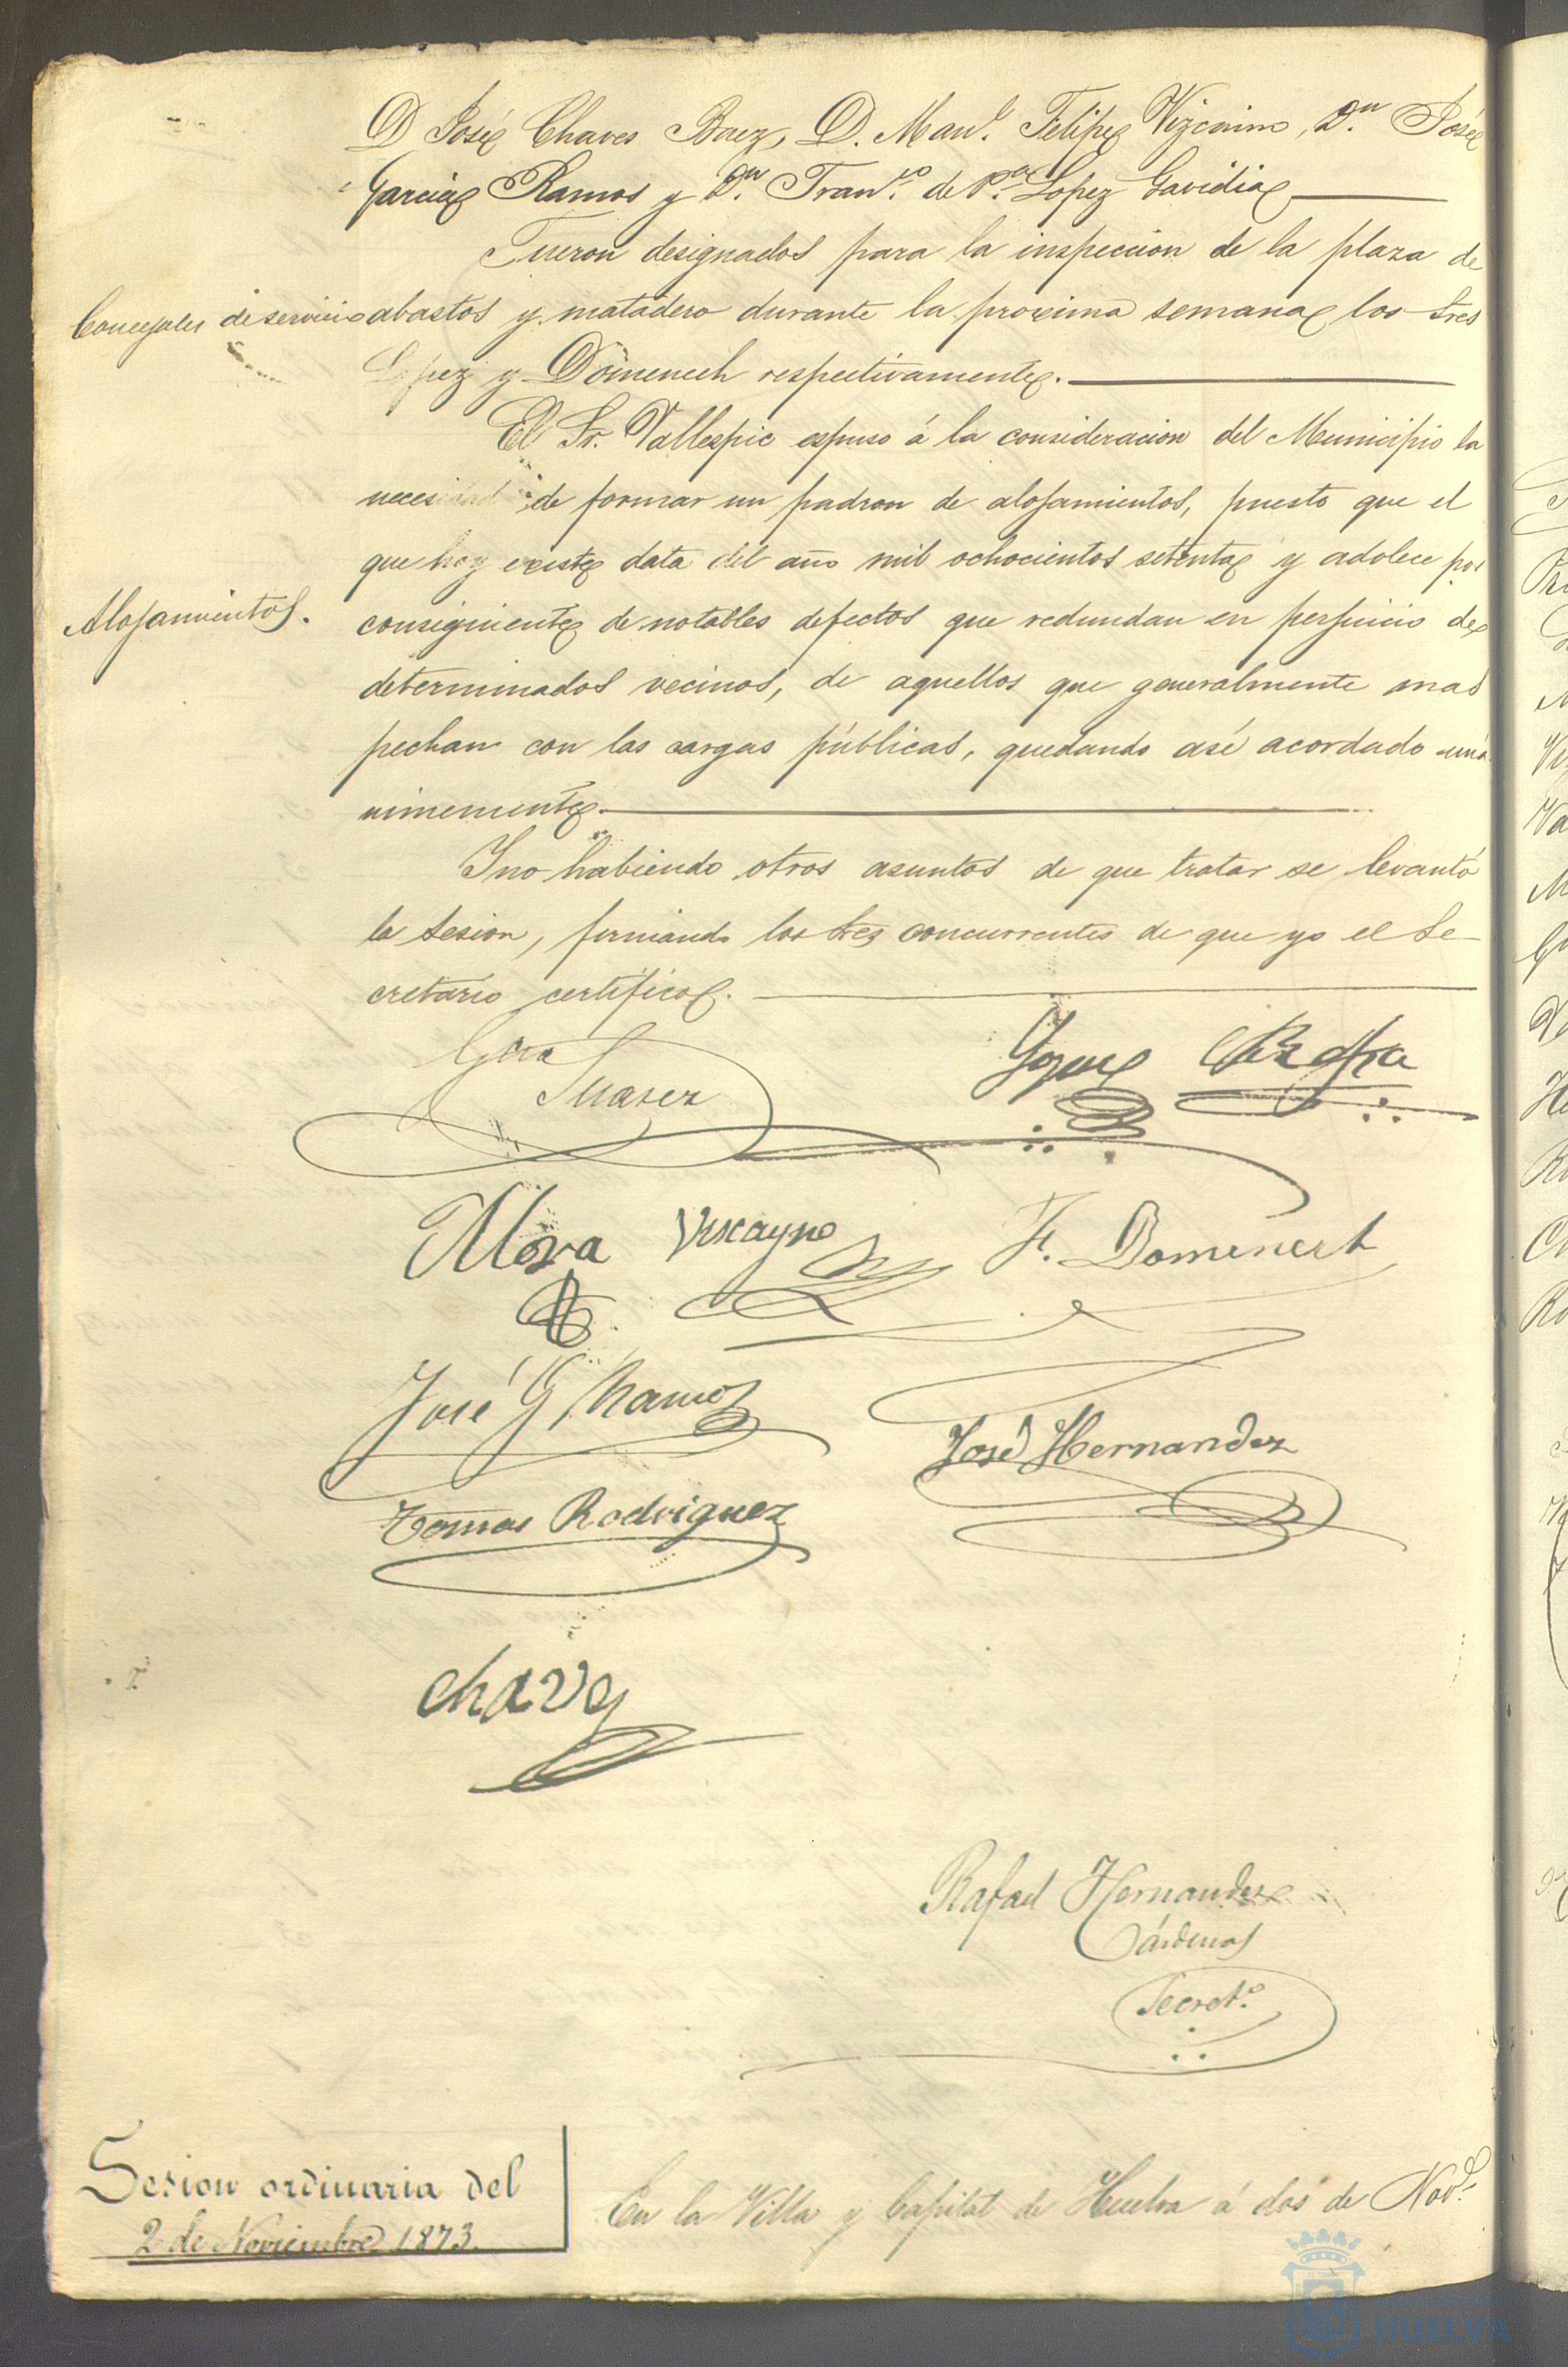 D José Chaves Baez, D. Man.l Felipe Vizcaino, D.n José
Garcia Ramos y D.n Fran.co de P.a Lopez Gavidia
Fueron designados para la inspeccion de la plaza de
Concejales de servicio
abastos y matadero durante la proxima semana los Sres
Lopez y Domenech respectivamente.
El Sr. Vallespic espuso á la consideracion del Municipio la
necesidad de formar un padron de alojamientos, puesto que el
que hoy existe data del año mil ochocientos setenta y adolece por
Alojamientos.
consiguiente de notables defectos que redundan en perjuicio de
determinados vecinos, de aquellos que generalmente mas
pechan con las cargas públicas, quedando asé acordado uná
nimemente.
Y no habiendo otros asuntos de que tratar se levantó
la sesion, firmando los Sres concurrentes de que yo el Se-
cretario certifico.
Suarez
Mora Vizcayno F. Domenech
José G Ramos
José Hernandez
Tomas Rodriguez
Chaves
Rafael Hernandez
Cárdenas
Secret.o
Sesion ordinaria del
2 de Noviembre 1873.
En la Villa y Capital de Huelva á dos de Nov.e
HUELVA